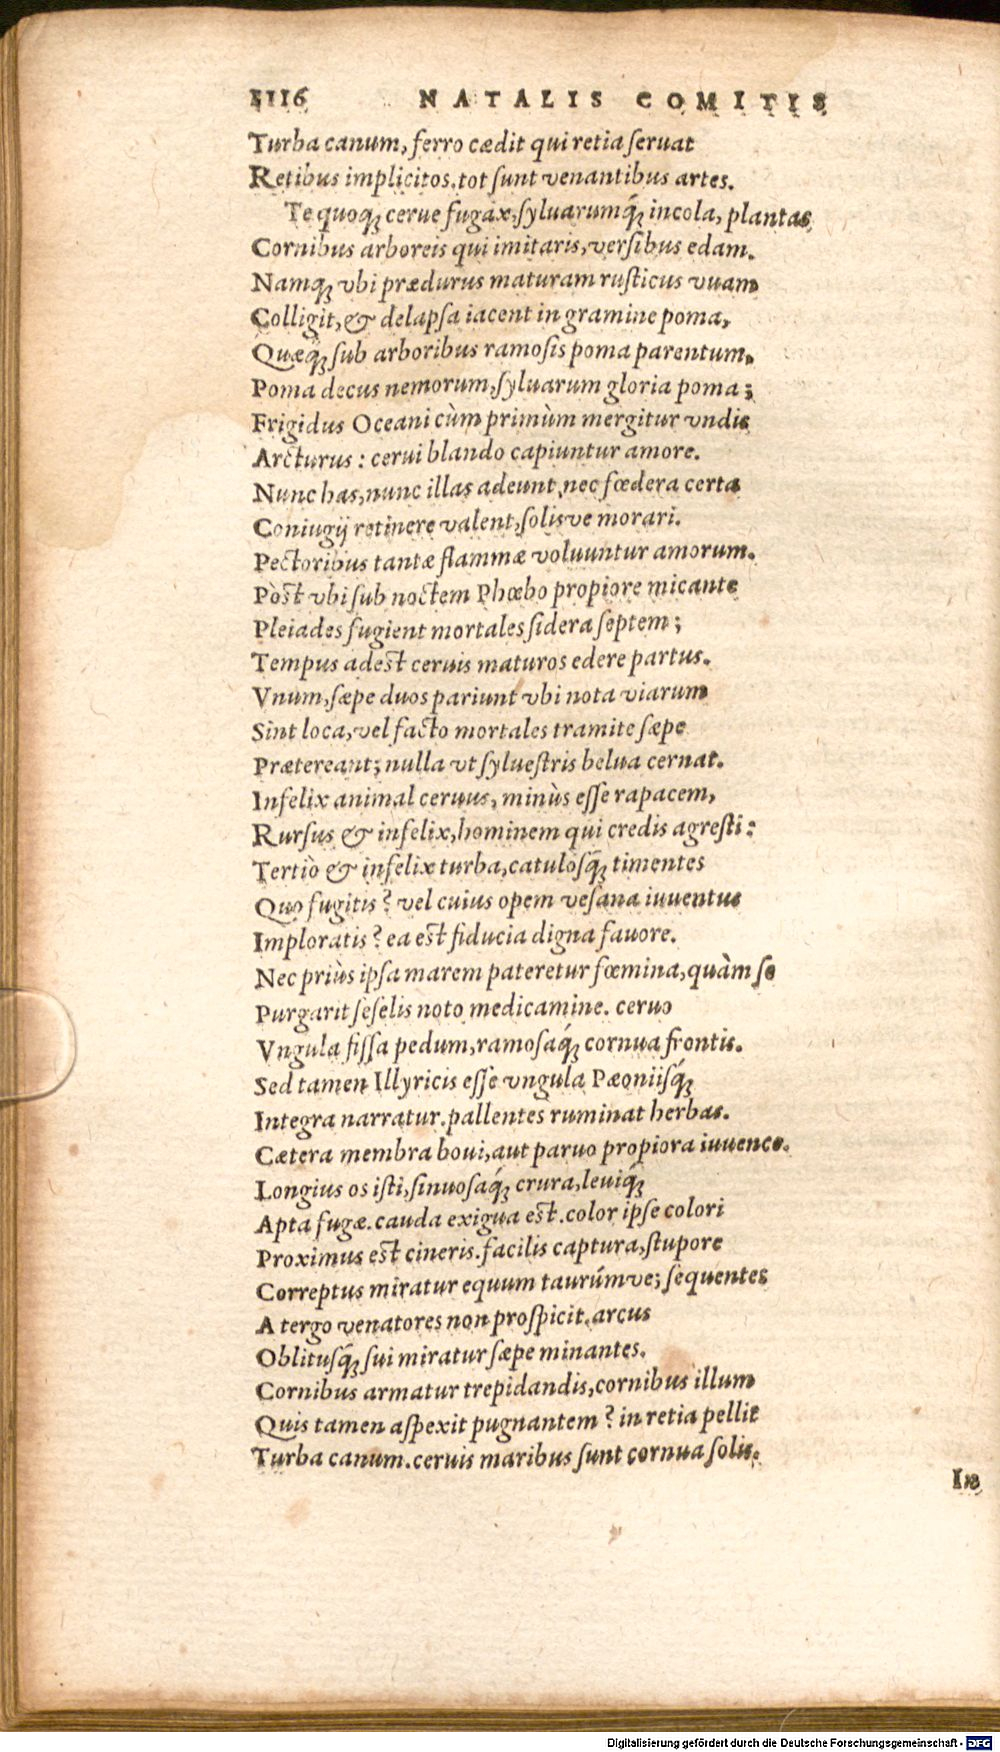 1116 NATALIS COMITIS
Turba canum, ferro cædit qui retia seruat
Retibus implicitos. tot sunt venantibus artes.
Te quoq; cerue fugax, syluarumq́; incola, plantas
Cornibus arboreis qui imitaris, versibus edam.
Namq; vbi prædurus maturam rusticus vuam
Colligit, & delapsa iacent in gramine poma,
Quæq́; sub arboribus ramosis poma parentum,
Poma decus nemorum, syluarum gloria poma;
Frigidus Oceani cùm primùm mergitur vndis
Arcturus: cerui blando capiuntur amore.
Nunc has, nunc illas adeunt, nec fœdera certa
Coniugij retinere valent, solisve morari.
Pectoribus tantæ flammæ voluuntur amorum.
Pòst vbi sub noctem Phœbo propiore micante
Pleiades fugient mortales sidera septem;
Tempus adest ceruis maturos edere partus.
Vnum, sæpe duos pariunt vbi nota viarum
Sint loca, vel facto mortales tramite sæpe
Prætereant; nulla vt syluestris belua cernat.
Infelix animal ceruus, minùs esse rapacem,
Rursus & infelix, hominem qui credis agresti:
Tertiò & infelix turba, catulosq́; timentes
Quo fugitis? vel cuius opem vesana iuuentus
Imploratis? ea est fiducia digna fauore.
Nec priùs ipsa marem pateretur fœmina, quàm se
Purgarit seselis noto medicamine. ceruo
Vngula fissa pedum, ramosaq́; cornua frontis.
Sed tamen Illyricis esse vngula Pæoniisq́;
Integra narratur. pallentes ruminat herbas.
Cætera membra boui, aut paruo propiora iuuenco.
Longius os isti, sinuosaq́; crura, leuiq́;
Apta fugæ. cauda exigua est. color ipse colori
Proximus est cineris. facilis captura, stupore
Correptus miratur equum taurúmve; sequentes
A tergo venatores non prospicit. arcus
Oblitusq́; sui miratur sæpe minantes.
Cornibus armatur trepidandis, cornibus illum
Quis tamen aspexit pugnantem? in retia pellit
Turba canum. ceruis maribus sunt cornua solis.
In
Digitalisierung gefördert durch die Deutsche Forschungsgemeinschaft - DFG